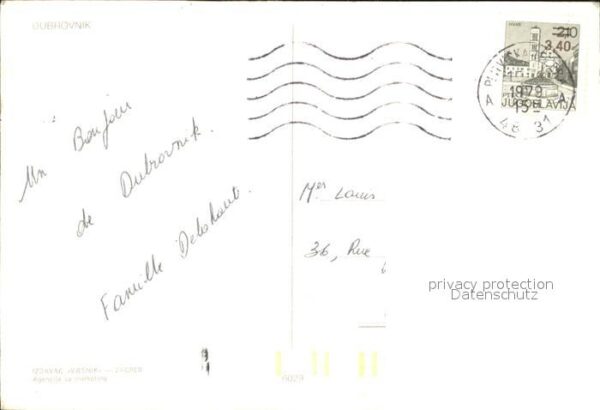 DUBROVNIK
Un Bonjour
de Dubrovnik.
Famille
HVAR
2,10
3,40
JUGOSLAVIJA
1979
15
A A
Mes Louis
36, Rue
privacy protection
Datenschutz
IZDAVAČ »VJESNIK« — ZAGREB
Agencija za marketing
6029